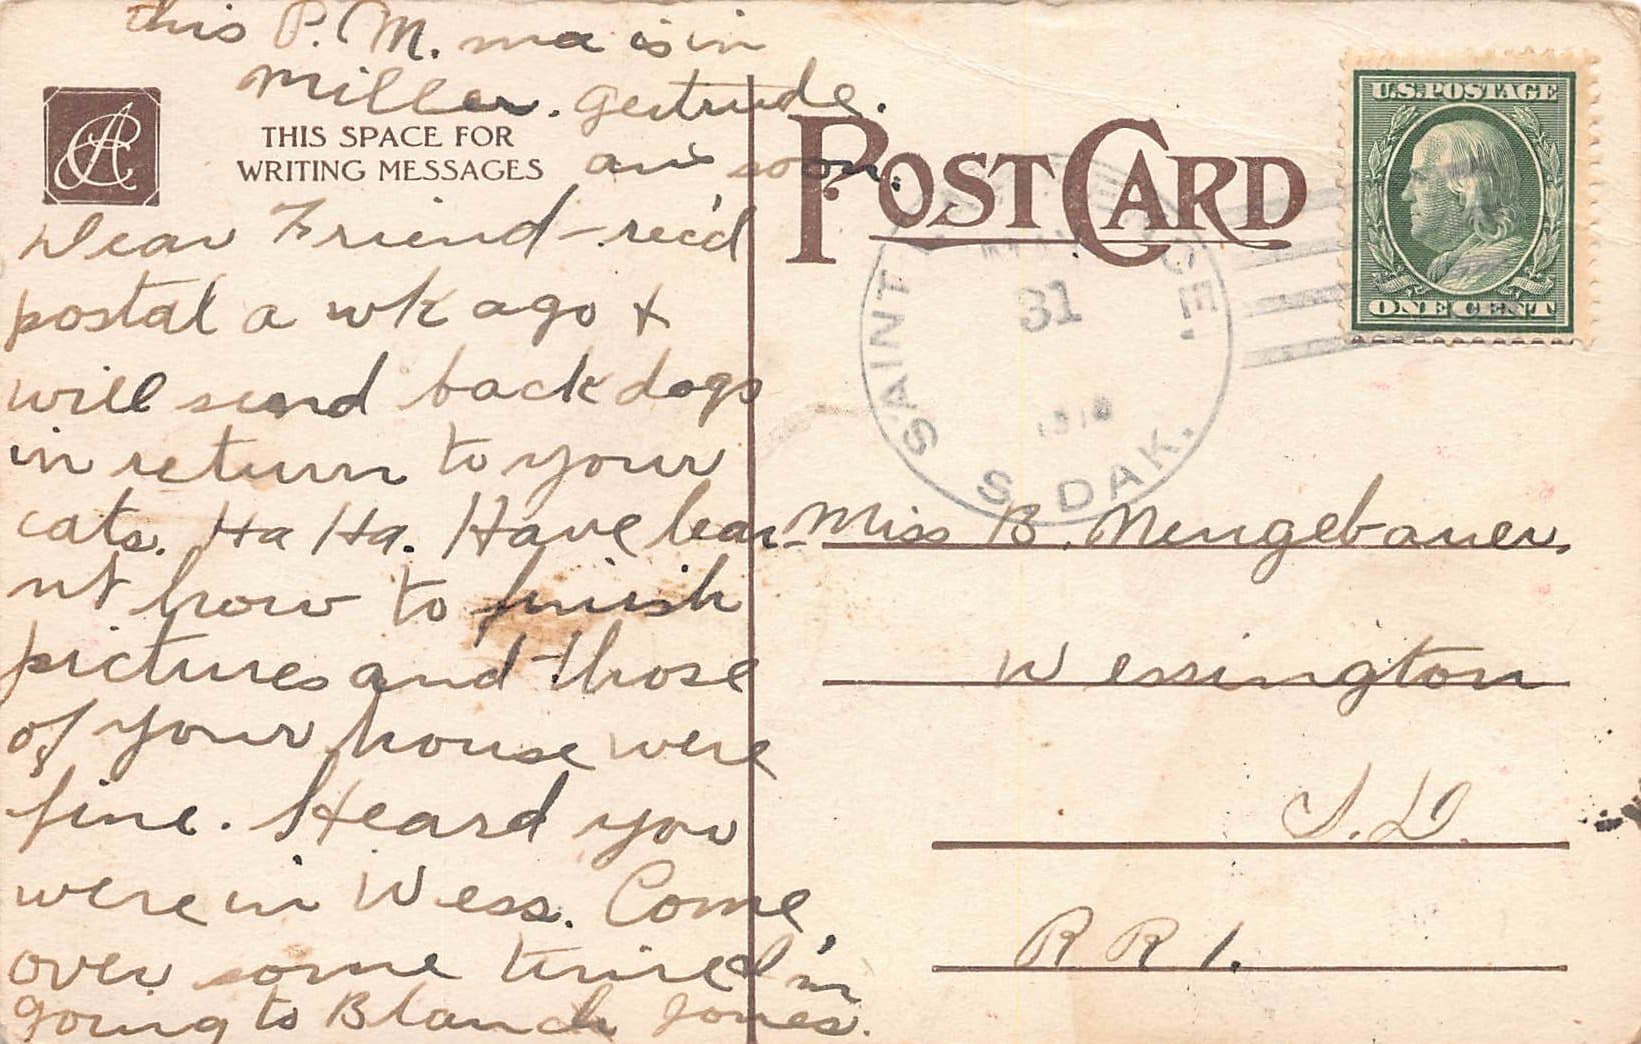 this P.M. ma is in
Miller. Gertrude.
THIS SPACE FOR
WRITING MESSAGES
ans soon.
Dear Friend - rec'd
postal a wk ago +
will send back dogs
in return to your
cats. Ha Ha. Have lear-
nt how to finish
pictures and those
of your house were
fine. Heard you
were in Wess. Come
over some time I'm
going to Blanch Jones.
POST CARD
U.S. POSTAGE
ONE CENT
SAINT
GE,
31
1910
S. DAK.
Miss B. Neugebauer,
Wessington
S.D.
R R 1.